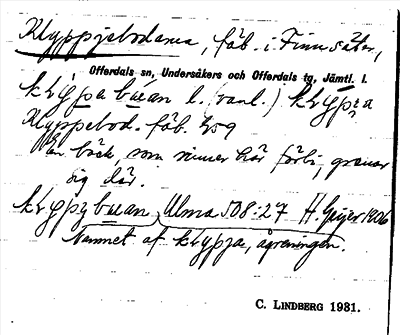 Klyppjebodarna, fäb. i Finnsäter,
Offerdals sn, Undersåkers och Offerdals tg, Jämtl. l.
klypabúan l. (vanl.) klypza
Klyppebod. fäb. 259
En bäck, som rinner här förbi, grenar
sig där.
klypzbuan, Ulma 508:27 H. Geijer 1906
Namnet af klypza,ågreningen.
C. LINDBERG 1931.